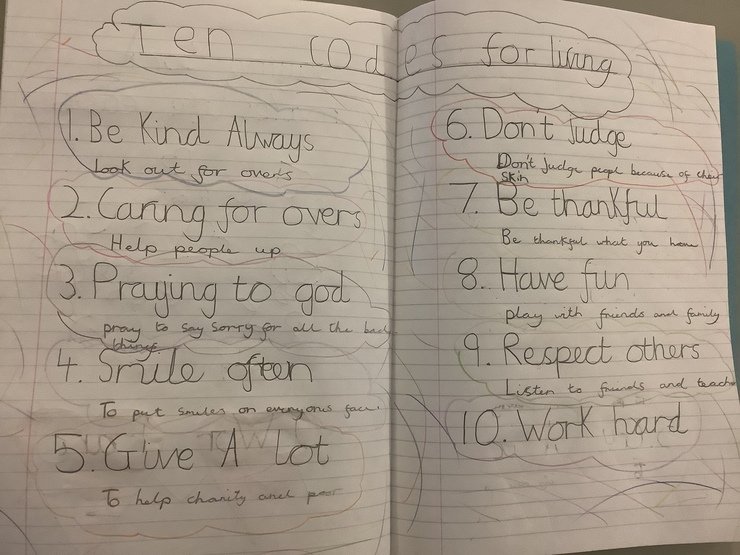 Ten codes for living
1. Be Kind Always
Look out for overs
2. Caring for overs
Help people up
3. Praying to god
pray to say sorry for all the bad
things
4. Smile often
To put smiles on everyones face.
5. Give A lot
To help charity and poor
6. Don't Judge
Don't Judge peopl because of their
skin
7. Be thankful
Be thankful what you have
8. Have fun
play with friends and family
9. Respect others
Listen to friends and teach
10. Work hard